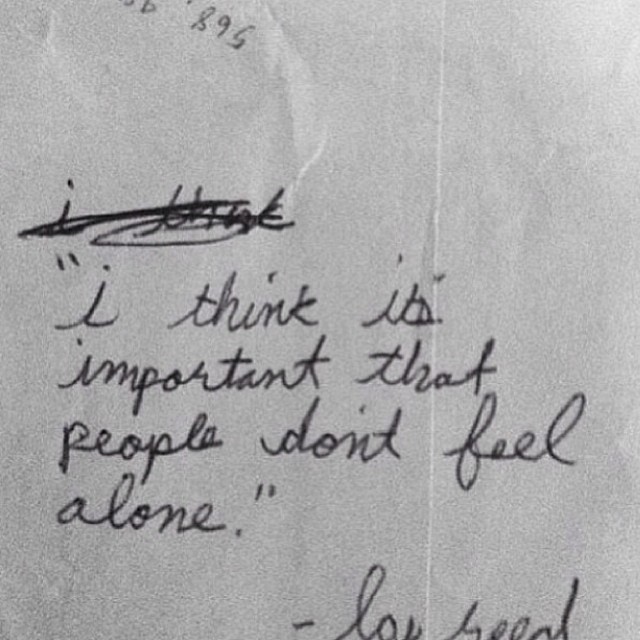 568
i think
"i think it's
important that
people don't feel
alone."
- lou reed